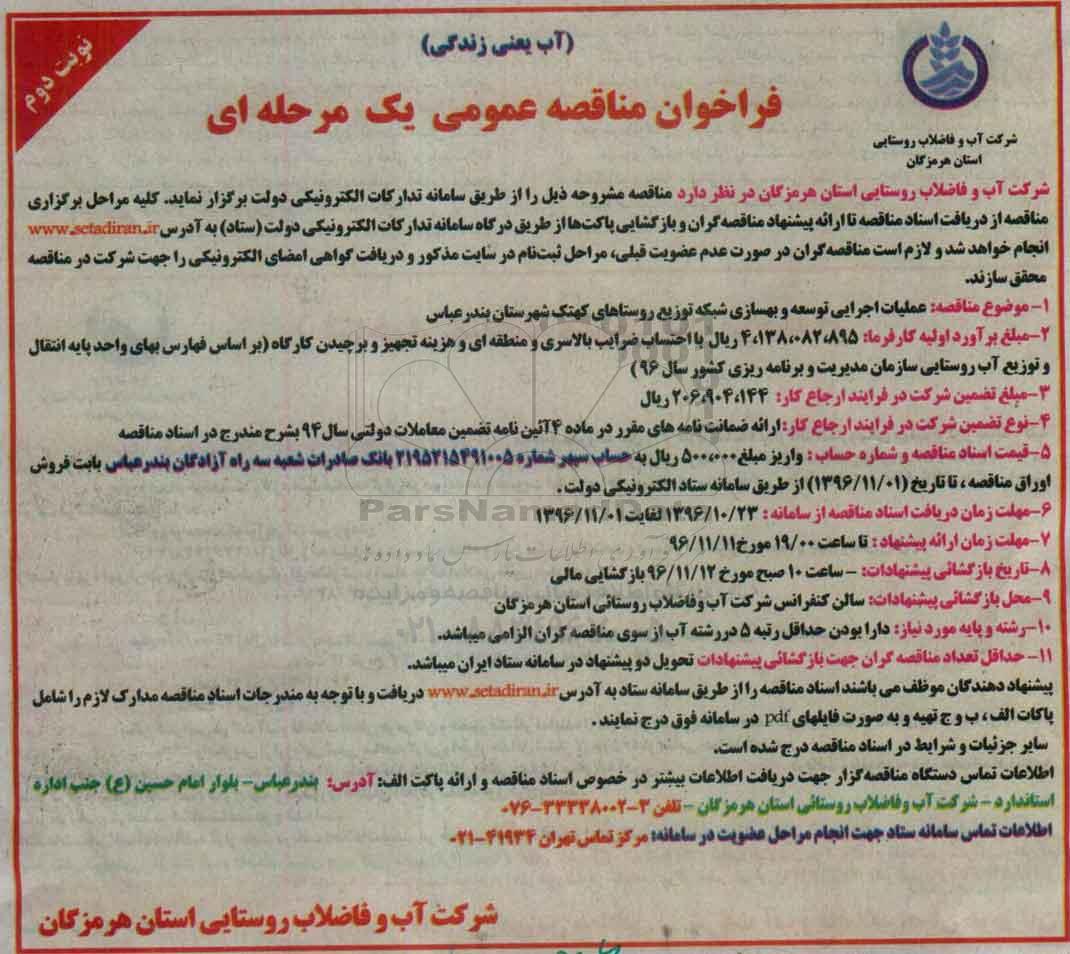 نوبت دوم
(آب یعنی زندگی)
فراخوان مناقصه عمومی یک مرحله ای
شرکت آب و فاضلاب روستایی
استان هرمزگان
شرکت آب و فاضلاب روستایی استان هرمزگان در نظر دارد مناقصه مشروحه ذیل را از طریق سامانه تدارکات الکترونیکی دولت برگزار نماید. کلیه مراحل برگزاری
مناقصه از دریافت اسناد مناقصه تا ارائه پیشنهاد مناقصه‌گران و بازگشایی پاکت‌ها از طریق درگاه سامانه تدارکات الکترونیکی دولت (ستاد) به آدرس www.setadiran.ir
انجام خواهد شد و لازم است مناقصه‌گران در صورت عدم عضویت قبلی، مراحل ثبت‌نام در سایت مذکور و دریافت گواهی امضای الکترونیکی را جهت شرکت در مناقصه
محقق سازند.
۱- موضوع مناقصه: عملیات اجرایی توسعه و بهسازی شبکه توزیع روستاهای کهتک شهرستان بندرعباس
۲-مبلغ برآورد اولیه کارفرما: ۴،۱۳۸،۰۸۲،۸۹۵ ریال با احتساب ضرایب بالاسری و منطقه ای و هزینه تجهیز و برچیدن کارگاه (بر اساس فهارس بهای واحد پایه انتقال
و توزیع آب روستایی سازمان مدیریت و برنامه ریزی کشور سال ۹۶)
۳-مبلغ تضمین شرکت در فرایند ارجاع کار: ۲۰۶،۹۰۴،۱۴۴ ریال
۴-نوع تضمین شرکت در فرایند ارجاع کار: ارائه ضمانت نامه های مقرر در ماده ۴ آئین نامه تضمین معاملات دولتی سال ۹۴ بشرح مندرج در اسناد مناقصه
۵-قیمت اسناد مناقصه و شماره حساب : واریز مبلغ ۵۰۰،۰۰۰ ریال به حساب سپهر شماره ۲۱۹۵۲۱۵۴۹۱۰۰۵ بانک صادرات شعبه سه راه آزادگان بندرعباس بابت فروش
اوراق مناقصه ، تا تاریخ (۱۳۹۶/۱۱/۰۱) از طریق سامانه ستاد الکترونیکی دولت .
۶-مهلت زمان دریافت اسناد مناقصه از سامانه : ۱۳۹۶/۱۰/۲۳ لغایت ۱۳۹۶/۱۱/۰۱
۷-مهلت زمان ارائه پیشنهاد : تا ساعت ۱۹/۰۰ مورخ ۹۶/۱۱/۱۱
۸-تاریخ بازگشائی پیشنهادات: - ساعت ۱۰ صبح مورخ ۹۶/۱۱/۱۲ بازگشایی مالی
۹-محل بازگشائی پیشنهادات: سالن کنفرانس شرکت آب وفاضلاب روستائی استان هرمزگان
۱۰-رشته و پایه مورد نیاز: دارا بودن حداقل رتبه ۵ دررشته آب از سوی مناقصه گران الزامی میباشد.
۱۱- حداقل تعداد مناقصه گران جهت بازگشائی پیشنهادات تحویل دو پیشنهاد در سامانه ستاد ایران میباشد.
پیشنهاد دهندگان موظف می باشند اسناد مناقصه را از طریق سامانه ستاد به آدرس www.setadiran.ir دریافت و با توجه به مندرجات اسناد مناقصه مدارک لازم را شامل
پاکات الف ، ب و ج تهیه و به صورت فایلهای pdf در سامانه فوق درج نمایند .
سایر جزئیات و شرایط در اسناد مناقصه درج شده است.
اطلاعات تماس دستگاه مناقصه‌گزار جهت دریافت اطلاعات بیشتر در خصوص اسناد مناقصه و ارائه پاکت الف: آدرس: بندرعباس- بلوار امام حسین (ع) جنب اداره
استاندارد - شرکت آب وفاضلاب روستائی استان هرمزگان - تلفن ۳-۳۳۳۳۸۰۰۲-۰۷۶
اطلاعات تماس سامانه ستاد جهت انجام مراحل عضویت در سامانه: مرکز تماس تهران ۴۱۹۳۴-۰۲۱
شرکت آب و فاضلاب روستایی استان هرمزگان